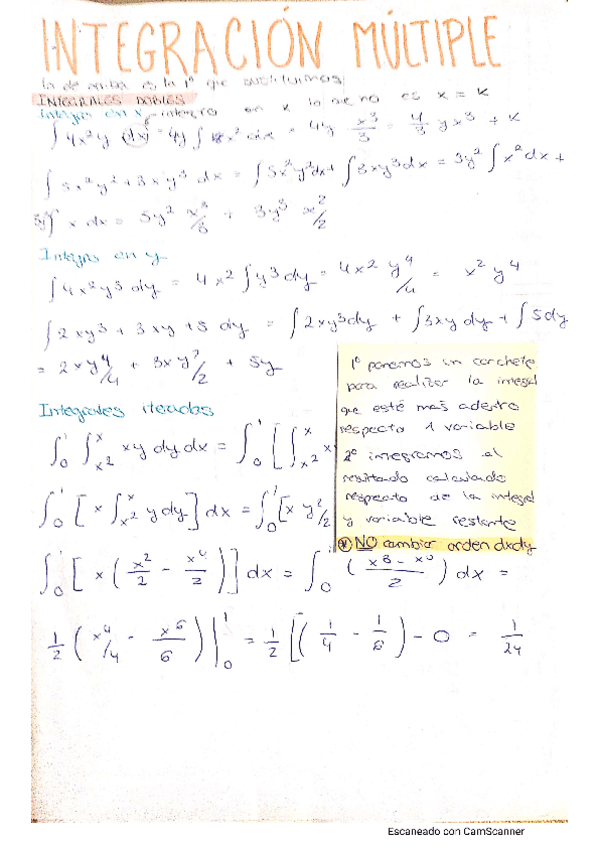 INTEGRACIÓN MÚLTIPLE
la de arriba es la 1ª que sustituimos
INTEGRALES DOBLES
Integrar en x, integro en x lo que no es x = K
∫ 4x²y (dx) = 4y ∫ x² dx = 4y x³/3 = 4/3 yx³ + K
∫ 5x²y² + 3xy³ dx = ∫ 5x²y² dx + ∫ 3xy³ dx = 3y² ∫ x² dx +
3y³ ∫ x dx = 5y² x³/3 + 3y³ x²/2
Integrar en y
∫ 4x²y³ dy = 4x² ∫ y³ dy = 4x² y⁴/4 = x² y⁴
∫ 2xy³ + 3xy + 5 dy = ∫ 2xy³ dy + ∫ 3xy dy + ∫ 5 dy
= 2x y⁴/4 + 3x y²/2 + 5y
Integrales iteradas
∫₀¹ ∫ₓ²ˣ xy dy dx = ∫₀¹ [ ∫ₓ²ˣ x
∫₀¹ [ x ∫ₓ²ˣ y dy ] dx = ∫₀¹ [ x y²/2
1º ponemos un corchete
para realizar la integral
que esté mas adentro
respecto 1 variable
2º integramos el
resultado calculado
respecto de la integral
y variable restante
* NO cambiar orden dxdy
∫₀¹ [ x ( x²/2 - x⁴/2 ) ] dx = ∫₀¹ ( x³ - x⁵ / 2 ) dx =
1/2 ( x⁴/4 - x⁶/6 ) |₀¹ = 1/2 [ ( 1/4 - 1/6 ) - 0 = 1/24
Escaneado con CamScanner